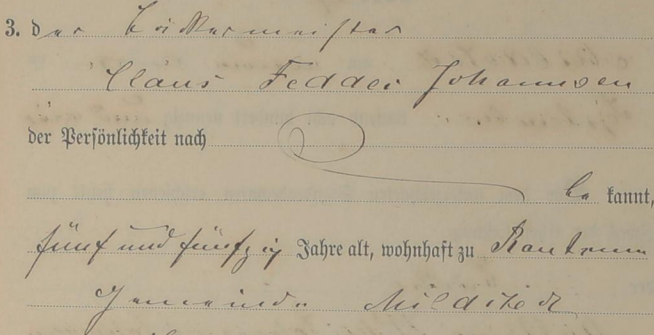 3. der Bäckermeister
Claus Feddei Johannsen
der Persönlichkeit nach
be kannt,
fünf und fünfzig Jahre alt, wohnhaft zu
Gemeinde Mildstedt